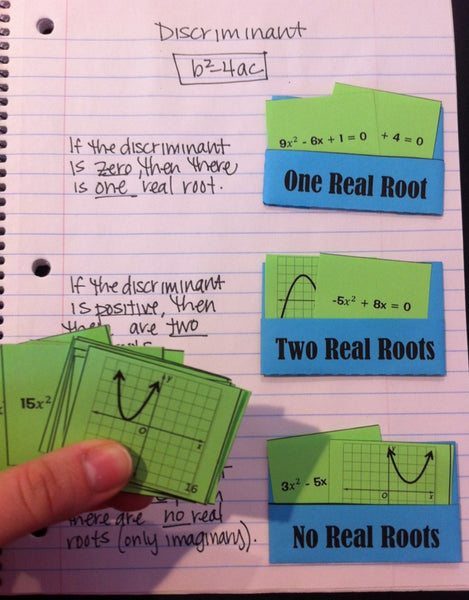 Discriminant
b²-4ac
If the discriminant
is zero, then there
is one real root.
9x² - 6x + 1 = 0
+ 4 = 0
One Real Root
If the discriminant
is positive, then
are two
-5x² + 8x = 0
Two Real Roots
15x²
y
x
O
16
3x² - 5x
y
x
O
there are no real
roots (only imaginary).
No Real Roots